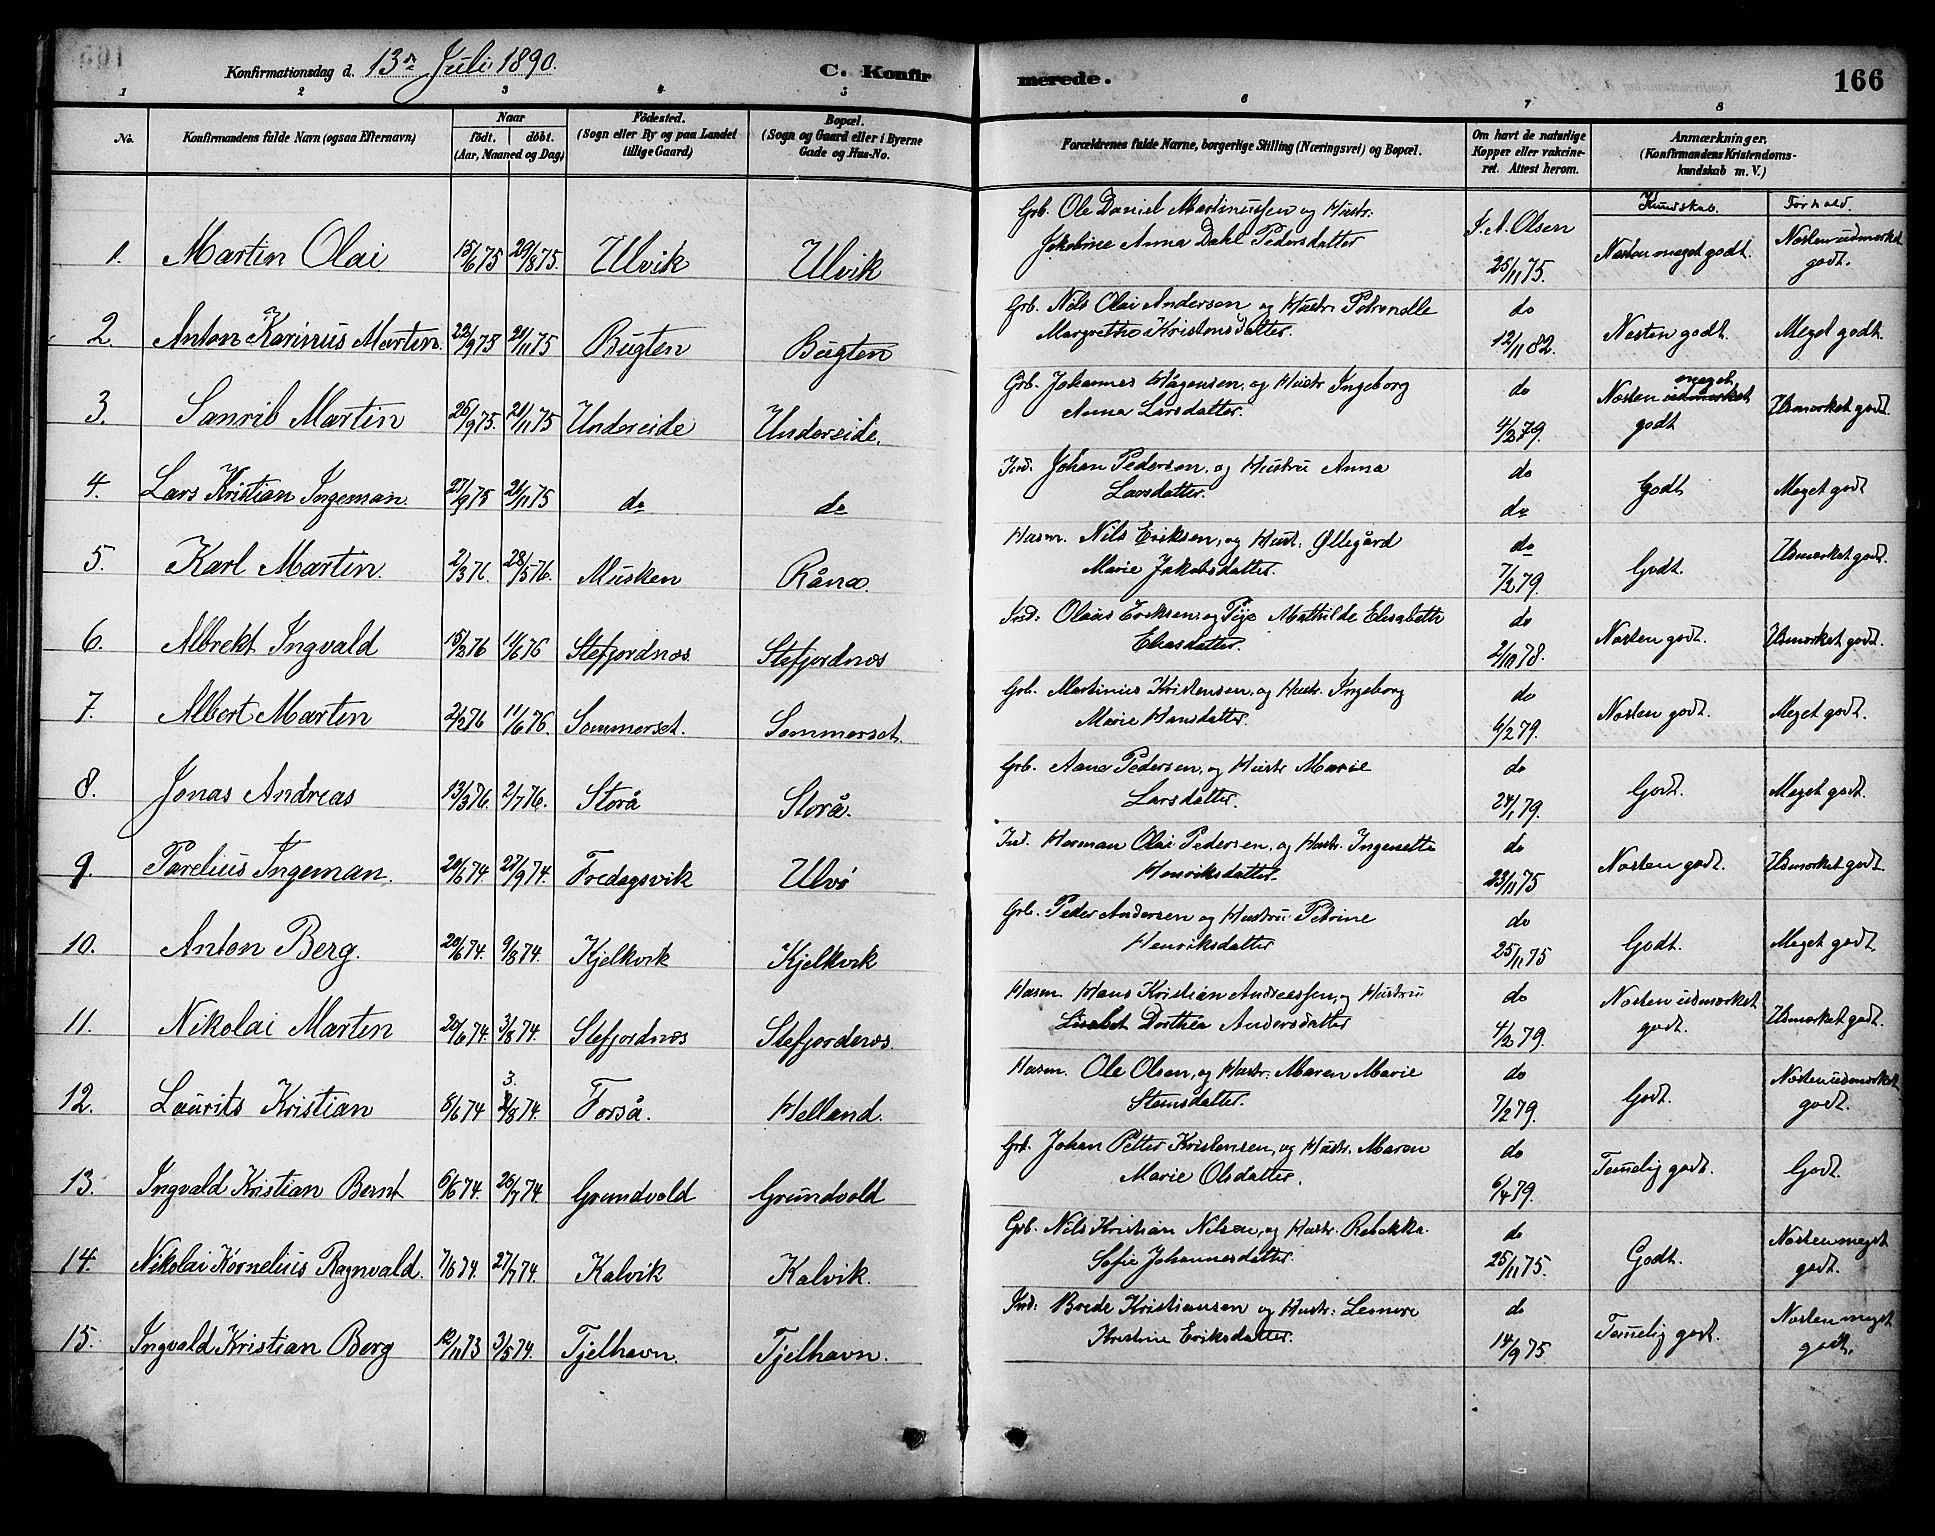 Konfirmationsdag d. 13de Juli 1890.
C. Konfirmerede.
166
1 2 3 4 5 6 7 8
No.
Konfirmandens fulde Navn (ogsaa Efternavn)
Naar
født. døbt.
(Aar, Maaned og Dag)
Fødested.
(Sogn eller By og paa Landet
tillige Gaard)
Bopæl.
(Sogn og Gaard eller i Byerne
Gade og Hus-No.
Forældrenes fulde Navne, borgerlige Stilling (Næringsvei) og Bopæl.
Om havt de naturlige
Kopper eller vakcine-
ret. Attest herom.
Anmærkninger.
(Konfirmandens Kristendoms-
kundskab m. V.)
Kundskab. Forhold.
1. Martin Olai 15/6 75 29/8 75. Ulvik Ulvik
Grb. Ole Daniel Martinussen og Hustr:
Jakobine Anna Dahl Pedersdatter
J. A. Olsen
25/11 75.
Næsten meget godt.
Næsten udmærket
godt.
2. Anton Karinus Martin. 22/9 75 21/11 75 Bugten Bugten
Grb. Nils Olai Andersen og Hustr. Petronelle
Margrethe Kristensdatter.
do
12/11 82.
Næsten godt.
Meget godt.
3. Sanrib Martin 25/9 75. 21/11 75 Undereide Undereide.
Grb. Johannes Hågensen, og Hustr Ingeborg
Anna Larsdatter.
do
4/2 79.
Næsten meget udmærket
godt
Udmærket godt.
4. Lars Kristian Ingeman. 27/9 75 21/11 75 do do
Ind. Johan Pedersen, og Hustru Anna
Larsdatter.
do
do
Godt
Meget godt
5. Karl Martin. 2/3 76. 28/5 76. Musken Råna.
Husm. Nils Eriksen, og Hust: Øllegård
Marie Jakobsdatter.
do
7/2 79.
Godt.
Udmærket godt.
6. Albrekt Ingvald 15/2 76 11/6 76 Stefjordnæs Stefjordnæs
Ind: Olaus Eriksen, og Pige Mathilde Elisabeth
Eliasdatter.
do
2/10 78.
Næsten godt.
Udmærket godt.
7. Albert Martin 2/2 76 11/6 76. Sommerset. Sommerset.
Grb. Martinus Kristensen, og Hustr. Ingeborg
Marie Hansdatter.
do
6/2 79.
Næsten godt.
Meget godt.
8. Jonas Andreas 13/3 76. 2/7 76. Storå Storå.
Grb. Pedersen, og Hustr Marie
Larsdatter.
do
24/1 79.
Godt.
Meget godt.
9. Parelius Ingeman. 20/6 74 27/9 74. Fredagsvik Ulvö
Ind. Herman Olai Pedersen, og Hustr. Ingenette
Henriksdatter.
do
23/11 75
Næsten godt.
Udmærket godt.
10. Anton Berg. 20/6 74. 9/8 74. Kjelkvik Kjelkvik
Grb. Peder Andersen og Hustru Petrine
Henriksdatter
do
25/11 75
Godt.
Meget godt.
11. Nikolai Martin 20/6 74. 3/8 74. Stefjordnæs Stefjordnæs.
Husm. Hans Kristian Andreassen, og Hustru
Lisabet Dorthea Andersdatter
do
4/2 79.
Næsten udmærket
godt.
Udmærket godt.
12. Laurits Kristian 8/6 74 3. /8 74. Forså. Helland.
Husm. Ole Olsen, og Hustr: Maren Marie
Stensdatter.
do
7/2 79.
Godt.
Næsten udmærket
godt.
13. Ingvald Kristian Bernt 6/6 74. 26/7 74. Grundvold Grundvold
Grb. Johan Petter Kristensen, og Hustr. Maren
Marie Olsdatter.
do
6/4 79.
Temelig godt.
Godt.
14. Nikolai Kornelius Ragnvald. 7/6 74. 27/7 74. Kalvik Kalvik.
Grb. Nils Kristian Nilsen, og Hustr. Rebekka
Sofie Johannesdatter.
do
25/11 75.
Godt.
Næsten meget
godt.
15. Ingvald Kristian Berg 12/11 73 3/5 74. Tjelhavn. Tjelhavn.
Ind: Brede Kristiansen og Hustr: Lenore
Kristine Eriksdatter.
do
14/9 75
Temelig godt.
Næsten meget
godt.